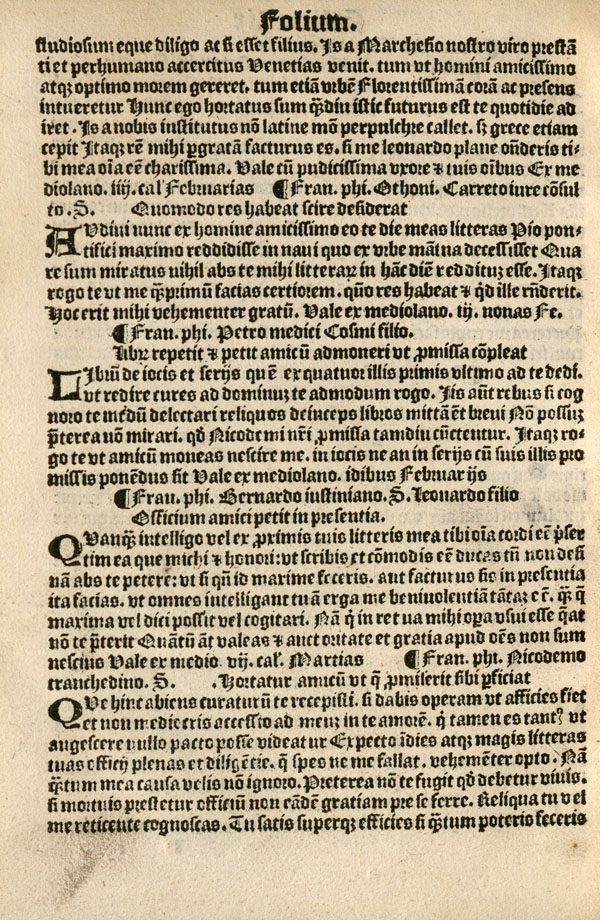 Folium.
studiosum eque diligo ac si esset filius. Is a Marchesio nostro viro prestā
ti et perhumano accercitus Venetias venit. tum vt homini amicissimo
atqꝫ optimo morem gereret. tum etiā vrbē Florentissimā corā ac presens
intueretur Hunc ego hortatus sum qͣ̄diu istic futurus est te quotidie ad
iret. Is a nobis institutus nō latine mō perpulchre callet. sꝫ grece etiam
cepit Itaqꝫ rē mihi ꝑgratā facturus es. si me leonardo plane on̄deris ti⸗
bi mea oīa eē charissima. Vale cū pudicissima vxore ⁊ tuis oībus Ex me
diolano. iiij. cal Februarias ¶ Fran. phi. Othoni. Carreto iure cōsul
to .S. Quomodo res habeat scire desiderat
AVdiui nunc ex homine amicissimo eo te die meas litteras Pio pon⸗
tifici maximo reddidisse in naui quo ex vrbe mātua decessisset Qua
re sum miratus nihil abs te mihi litteraꝝ in hāc diē reddituꝫ esse. Itaqꝫ
rogo te vt me qͣ̄primū facias certiorem. quō res habeat ⁊ qd ille rn̄derit.
Hoc erit mihi vehementer gratū. Vale ex mediolano. iij. nonas Fe.
¶ Fran. phi. Petro medici Cosmi filio.
Librꝫ repetit ⁊ petit amicū admoneri vt ꝓmissa cōpleat
LIbrū de iocis et serijs quē ex quatuor illis primis vltimo ad te dedi.
vt redire cures ad dominuꝫ te admodum rogo. Iis aūt rebus si cog
noro te īn̄dū delectari reliquos deinceps libros mittā ēt breui Nō possuꝫ
p̄terea nō mirari. qd Nicodemi nr̄i ꝓmissa tamdiu cūctentur. Itaqꝫ ro⸗
go te vt amicū moneas nescire me. in iocis ne an in serijs cū suis illis pro
missis ponēdus sit Vale ex mediolano. idibus Februarijs
¶ Fran. phi. Bernardo iustiniano. S. Leonardo filio
Officium amici petit in presentia.
QVanqͣ̄ intelligo vel ex ꝓximis tuis litteris mea tibi oīa cordi eē p̄ser
tim ea que michi ⁊ honori: vt scribis et cōmodis eē ducas tn̄ non desi
nā abs te petere: vt si qn̄ id maxime feceris. aut facturus sis in presentia
ita facias. vt omnes intelligant tuā erga me beniuolentiā tātaꝫ eē. qͣ̄ q̄
maxima vel dici possit vel cogitari. Nā q̄ in re tua mihi opa vsui esse q̄at
nō te p̄terit Quātū āt valeas ⁊ auctoritate et gratia apud oēs non sum
nescius Vale ex medio. vij. cal. Martias ¶ Fran. phi. Nicodemo
tranchedino. S. . Hortatur amicū vt q̄ ꝓmiserit sibi ꝑficiat
QVe hinc abiens curaturū te recepisti. si dabis operam vt afficies fiet
et non mediocris accessio ad meuꝫ in te amorē. q̄ tamen es tant⁹ vt
augescere nullo pacto posse videatur Expecto īdies atqꝫ magis litteras
tuas officij plenas et diligētie. q̄ spes ne me fallat. vehemēter opto. Nā
qͣ̄tum mea causa velis nō ignoro. Preterea nō te fugit qd debetur viuis.
si mortuis prestetur officiū non eādē gratiam pre se ferre. Reliqua tu vel
me reticente cognoscas. Tu satis superqꝫ efficies si qͣ̄tum poteris feceris